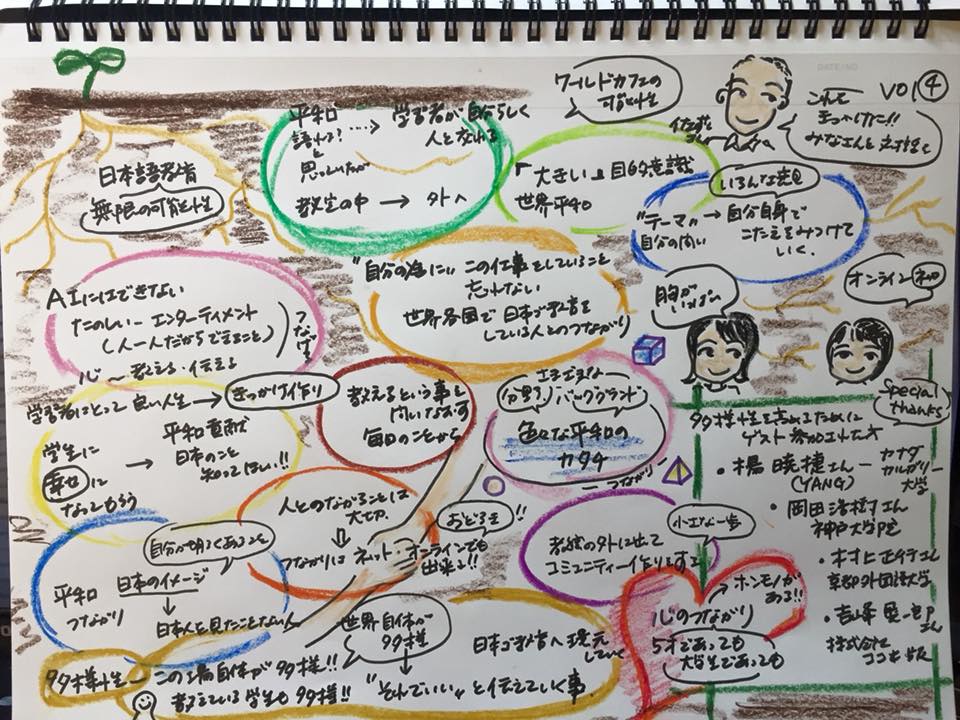 DATE/NO
VOl ④
ワールドカフェの
可能性
これを
きっかけに!!
みなさんと対話を
平和
語れる?
と
思っていたが
学習者が自分らしく
人と交れる
教室の中 → 外へ
「大きい」目的意識
世界平和
いろんな意見
"テーマ" → 自分自身で
自分の問い
こたえをみつけて
いく。
日本語教育
無限の可能性
"自分の為に" この仕事をしていること
忘れない
世界各国で日本語教育を
している人とのつながり
胸が
いっぱい
オンライン初
AIにはできない
たのしい ー エンターティメント
(人一人だからできること)
心 〜 教える・伝える
つなげる
学習者にとって 良い人生 → きっかけ作り
教えるという事を
問いなおす
毎日のことから
さまざまな
分野 バックグラウンド
色々な平和の
カタチ
つながり
学生に
幸せに
なってもらう
→ 平和貢献
日本のこと
知ってほしい!!
人とつながることは
大切
つながりは ネット オンラインでも
出来る!!
おどろき!!
自分が明るくあること
平和
つながり
日本のイメージ
日本人を見たことない人
教室の外に出て
コミュニティー作りをする
小さな一歩
ホンモノが
ある!!
心のつながり
5才であっても
大学生であっても
多様性
この場自体が多様!!
教えている学生も多様!!
世界自体が
多様
日本語教育へ還元
していく
"それでいい" と伝えていく事
Special
thanks
多様性を高めるために
ゲスト参加された方
・楊 暁捷さん ー カナダ
(YANG)
カルガリー
大学
・岡田 浩樹さん
神戸大学院
・村上正行さん
京都外国語大学
さん
株式会社
ココ出版